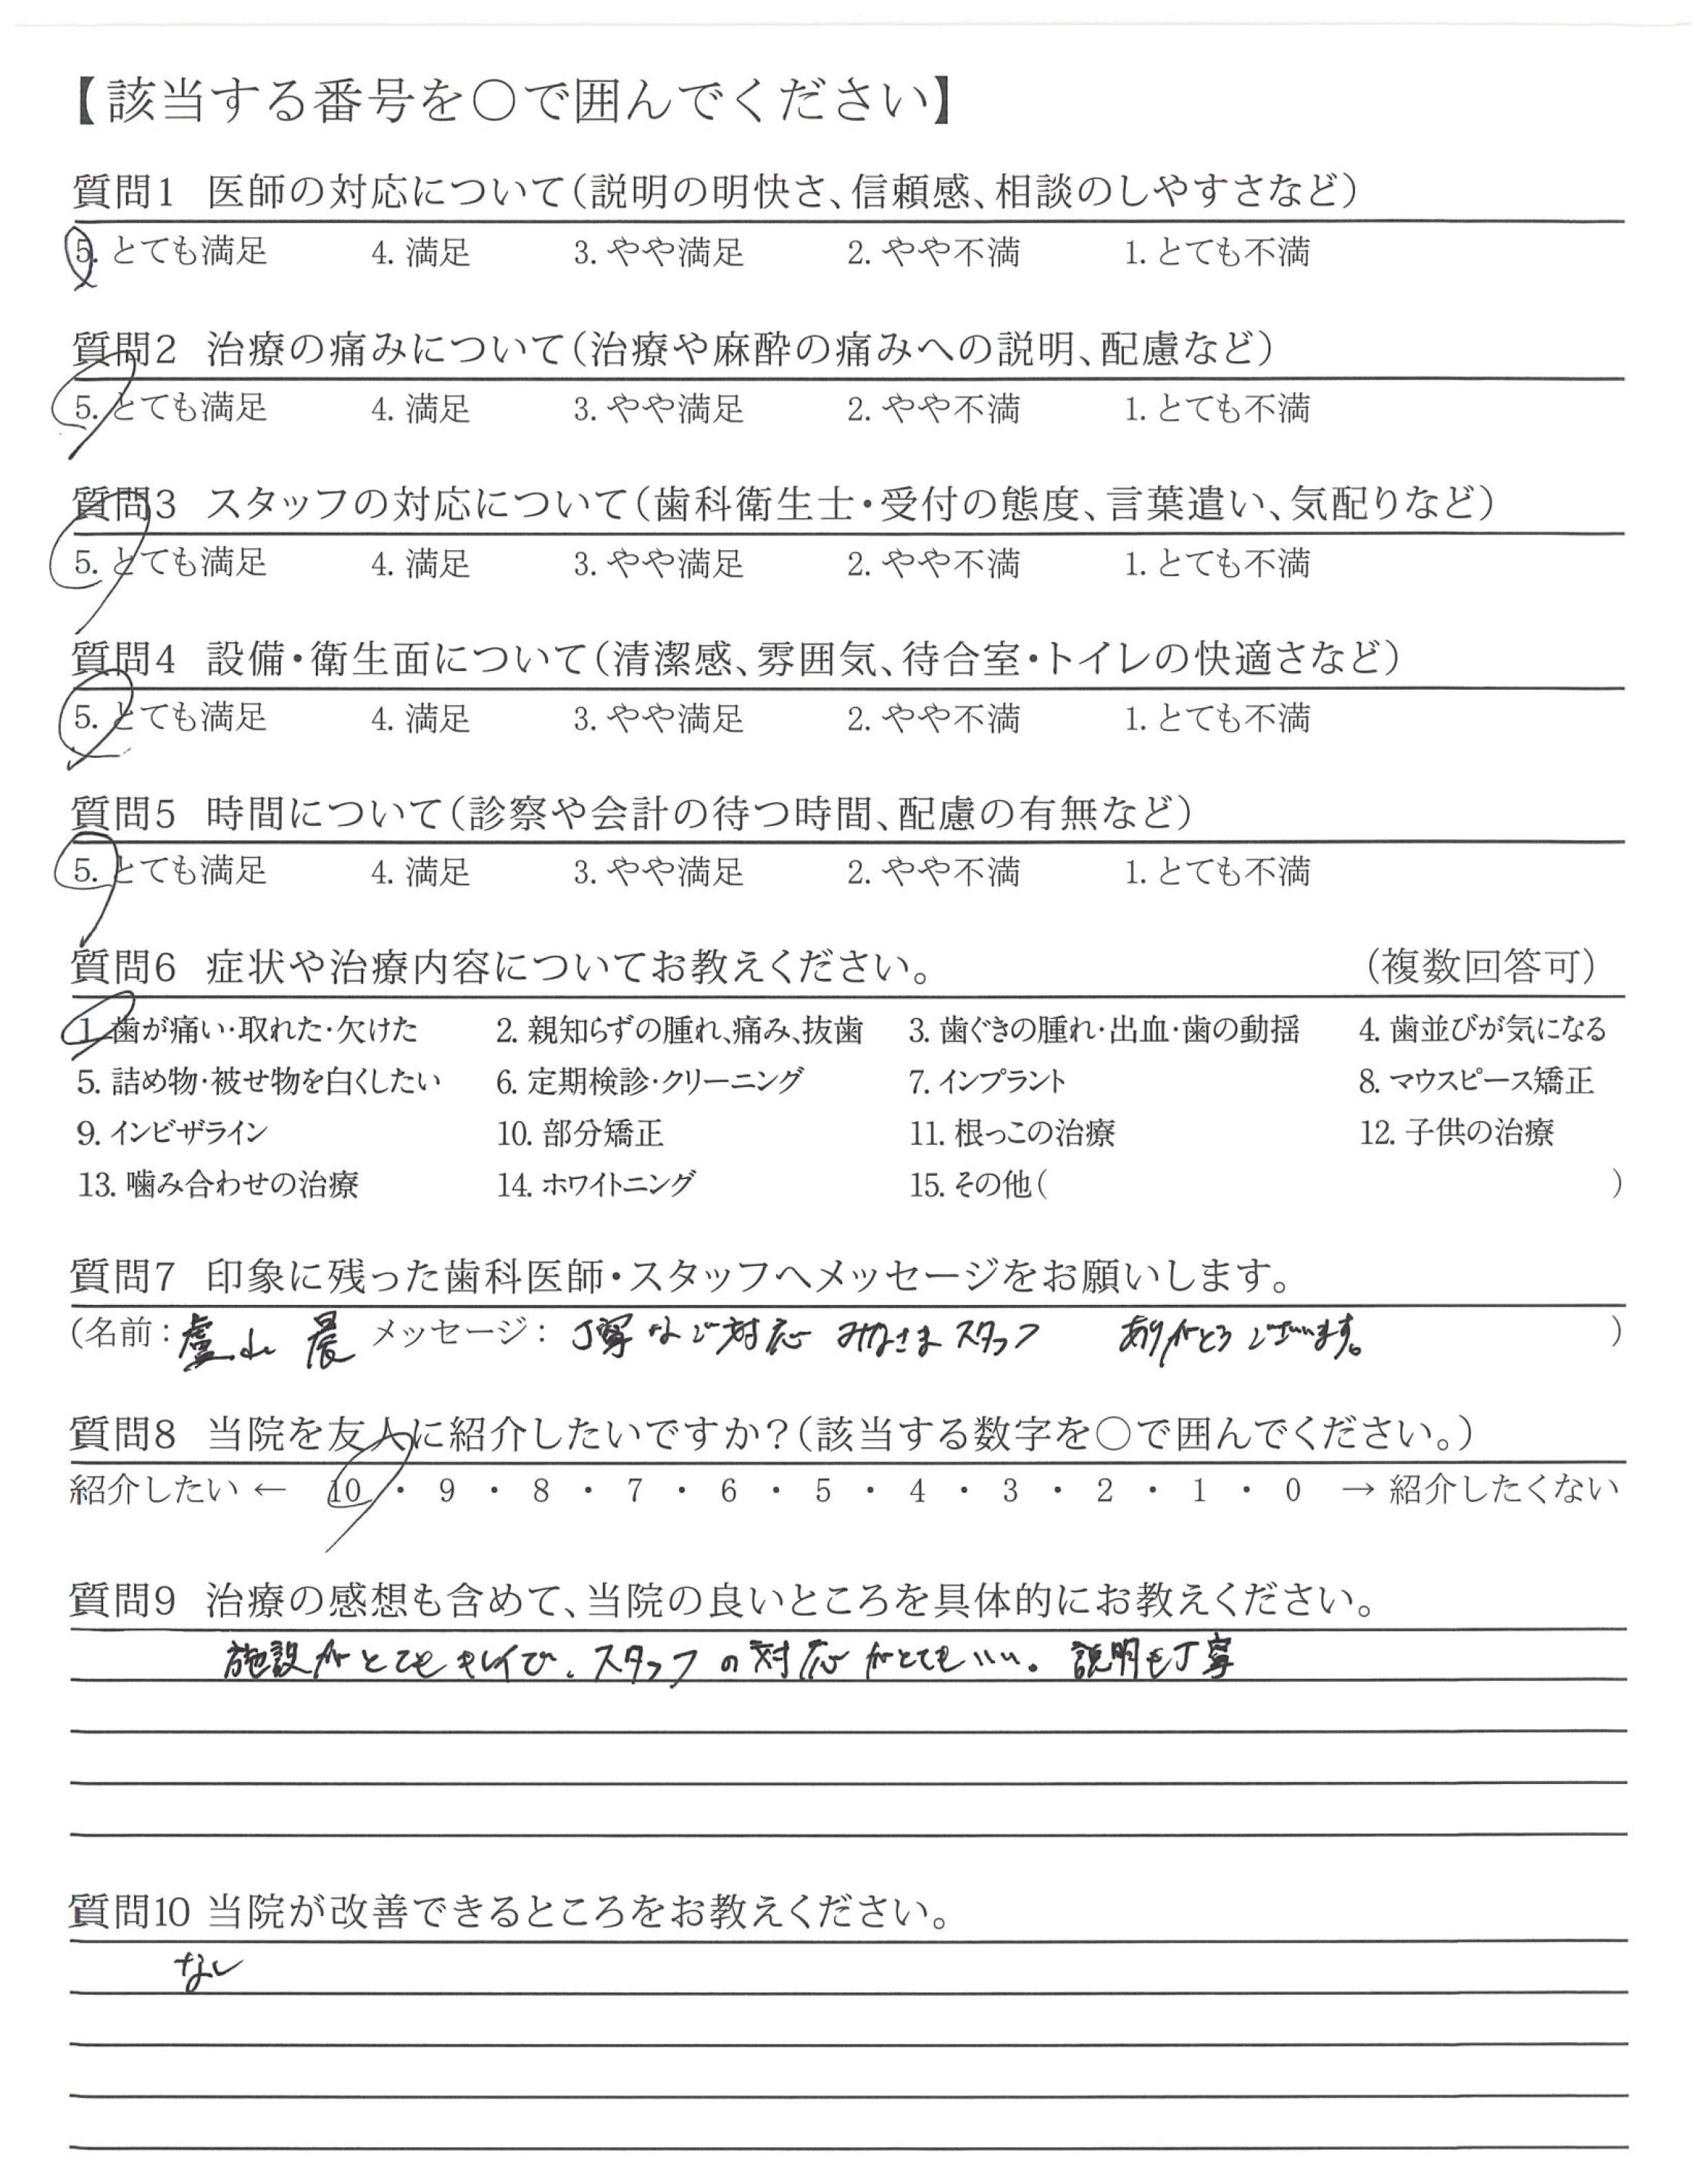 【該当する番号を○で囲んでください】
質問1 医師の対応について(説明の明快さ、信頼感、相談のしやすさなど)
5. とても満足 4. 満足 3. やや満足 2. やや不満 1. とても不満
質問2 治療の痛みについて(治療や麻酔の痛みへの説明、配慮など)
5. とても満足 4. 満足 3. やや満足 2. やや不満 1. とても不満
質問3 スタッフの対応について(歯科衛生士・受付の態度、言葉遣い、気配りなど)
5. とても満足 4. 満足 3. やや満足 2. やや不満 1. とても不満
質問4 設備・衛生面について(清潔感、雰囲気、待合室・トイレの快適さなど)
5. とても満足 4. 満足 3. やや満足 2. やや不満 1. とても不満
質問5 時間について(診察や会計の待つ時間、配慮の有無など)
5. とても満足 4. 満足 3. やや満足 2. やや不満 1. とても不満
質問6 症状や治療内容についてお教えください。 (複数回答可)
1. 歯が痛い・取れた・欠けた 2. 親知らずの腫れ、痛み、抜歯 3. 歯ぐきの腫れ・出血・歯の動揺 4. 歯並びが気になる
5. 詰め物・被せ物を白くしたい 6. 定期検診・クリーニング 7. インプラント 8. マウスピース矯正
9. インビザライン 10. 部分矯正 11. 根っこの治療 12. 子供の治療
13. 噛み合わせの治療 14. ホワイトニング 15. その他( )
質問7 印象に残った歯科医師・スタッフへメッセージをお願いします。
(名前: 晨 メッセージ: 丁寧なご対応 みなさま スタッフ ありがとうございます。 )
質問8 当院を友人に紹介したいですか?(該当する数字を○で囲んでください。)
紹介したい ← 10 ・ 9 ・ 8 ・ 7 ・ 6 ・ 5 ・ 4 ・ 3 ・ 2 ・ 1 ・ 0 → 紹介したくない
質問9 治療の感想も含めて、当院の良いところを具体的にお教えください。
施設がとてもキレイで、スタッフの対応がとてもいい。説明も丁寧
質問10 当院が改善できるところをお教えください。
なし